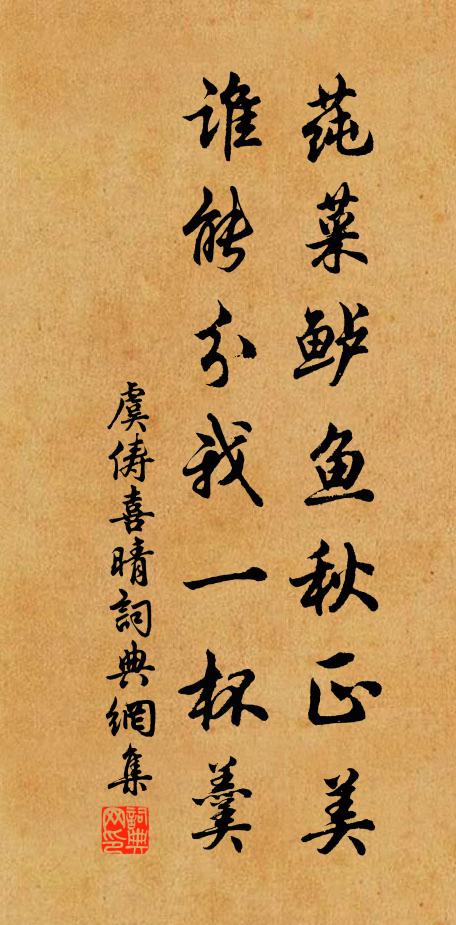 莼菜鲈鱼秋正美
谁能分我一杯羹
虞儔喜晴詞典網集
詞典网印